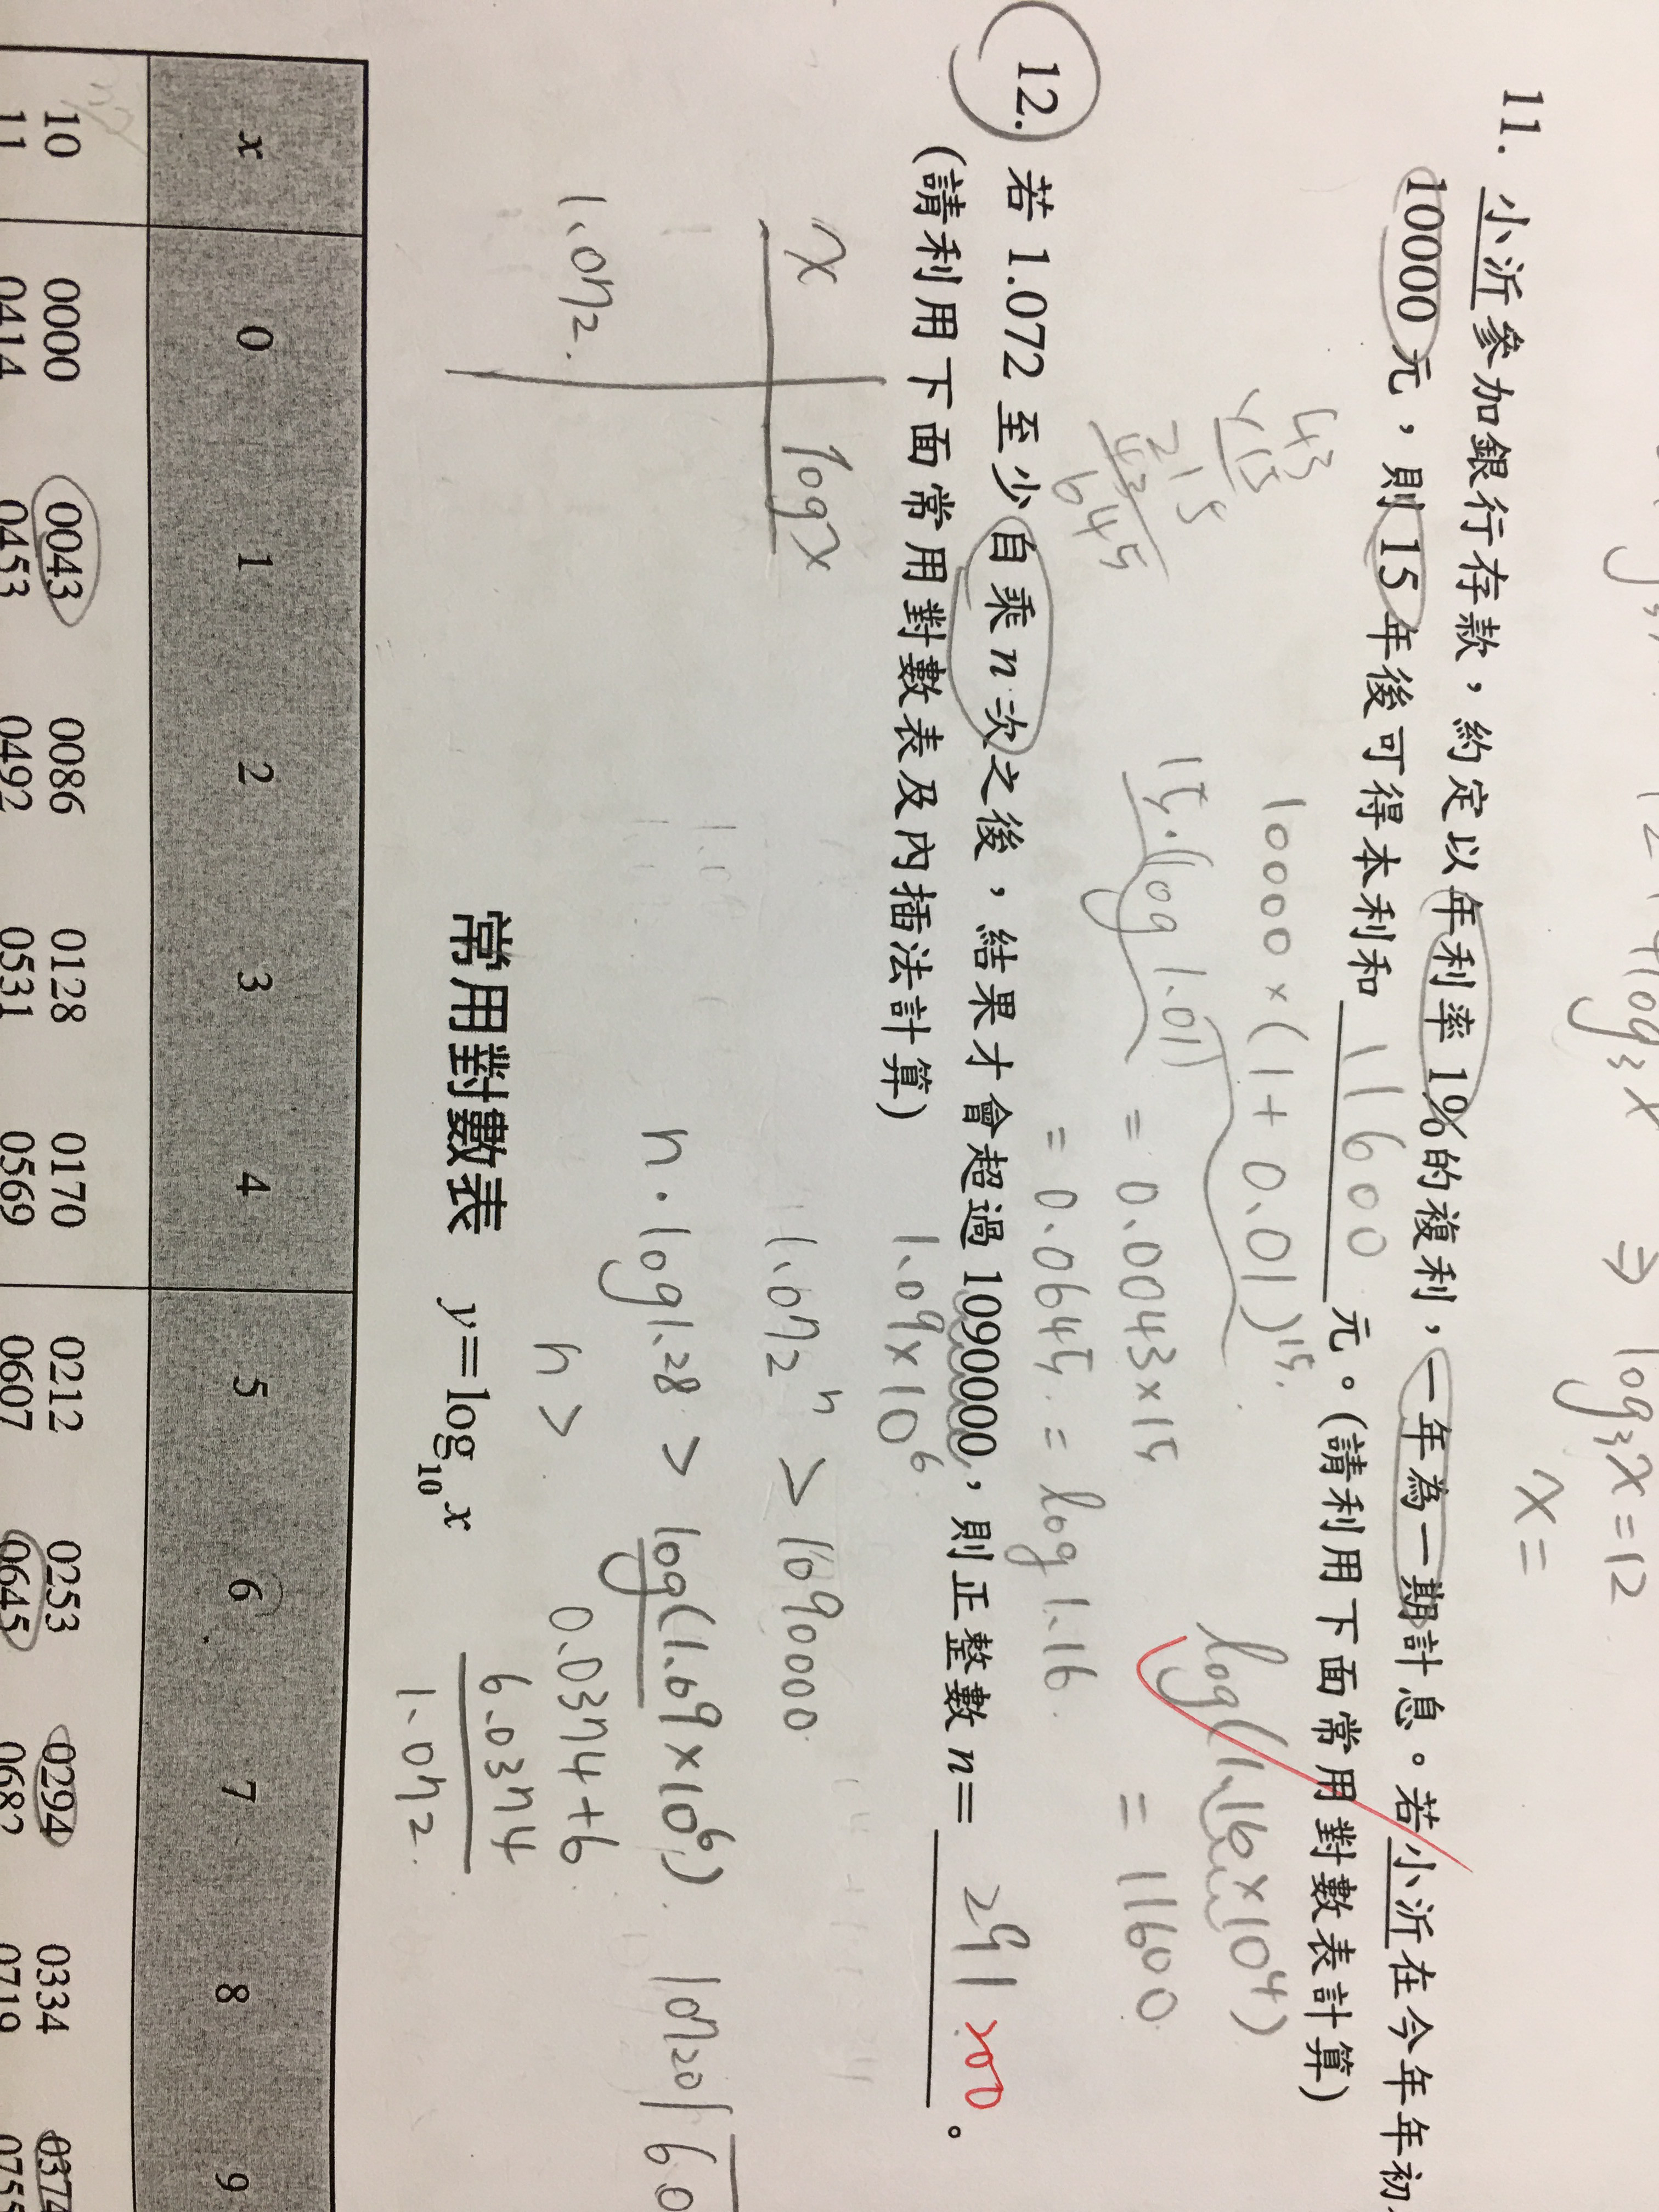 log₃x ⇒ log₃x=12
x=
11. 小沂參加銀行存款，約定以年利率 1%的複利，一年為一期計息。若小沂在今年年初
10000 元，則 15 年後可得本利和 11600 元。(請利用下面常用對數表計算)
10000×(1+0.01)¹⁵
log(1.16×10⁴)
15·log 1.01 = 0.0043×15
= 11600
= 0.0645 = log 1.16
43
×15
215
43
645
12. 若 1.072 至少自乘 n 次之後，結果才會超過 1090000，則正整數 n= 291 200 。
(請利用下面常用對數表及內插法計算)
1.09×10⁶
x logx
1.072ⁿ > 1090000
n·log1.28 > log(1.09×10⁶)
10720
60
1.072
n >
0.0374+6
6.0374
1.072
常用對數表 y=log₁₀ x
x 0 1 2 3 4 5 6 7 8 9
10 0000 0043 0086 0128 0170 0212 0253 0294 0334 0374
11 0414 0453 0492 0531 0569 0607 0645 0682 0719 0755